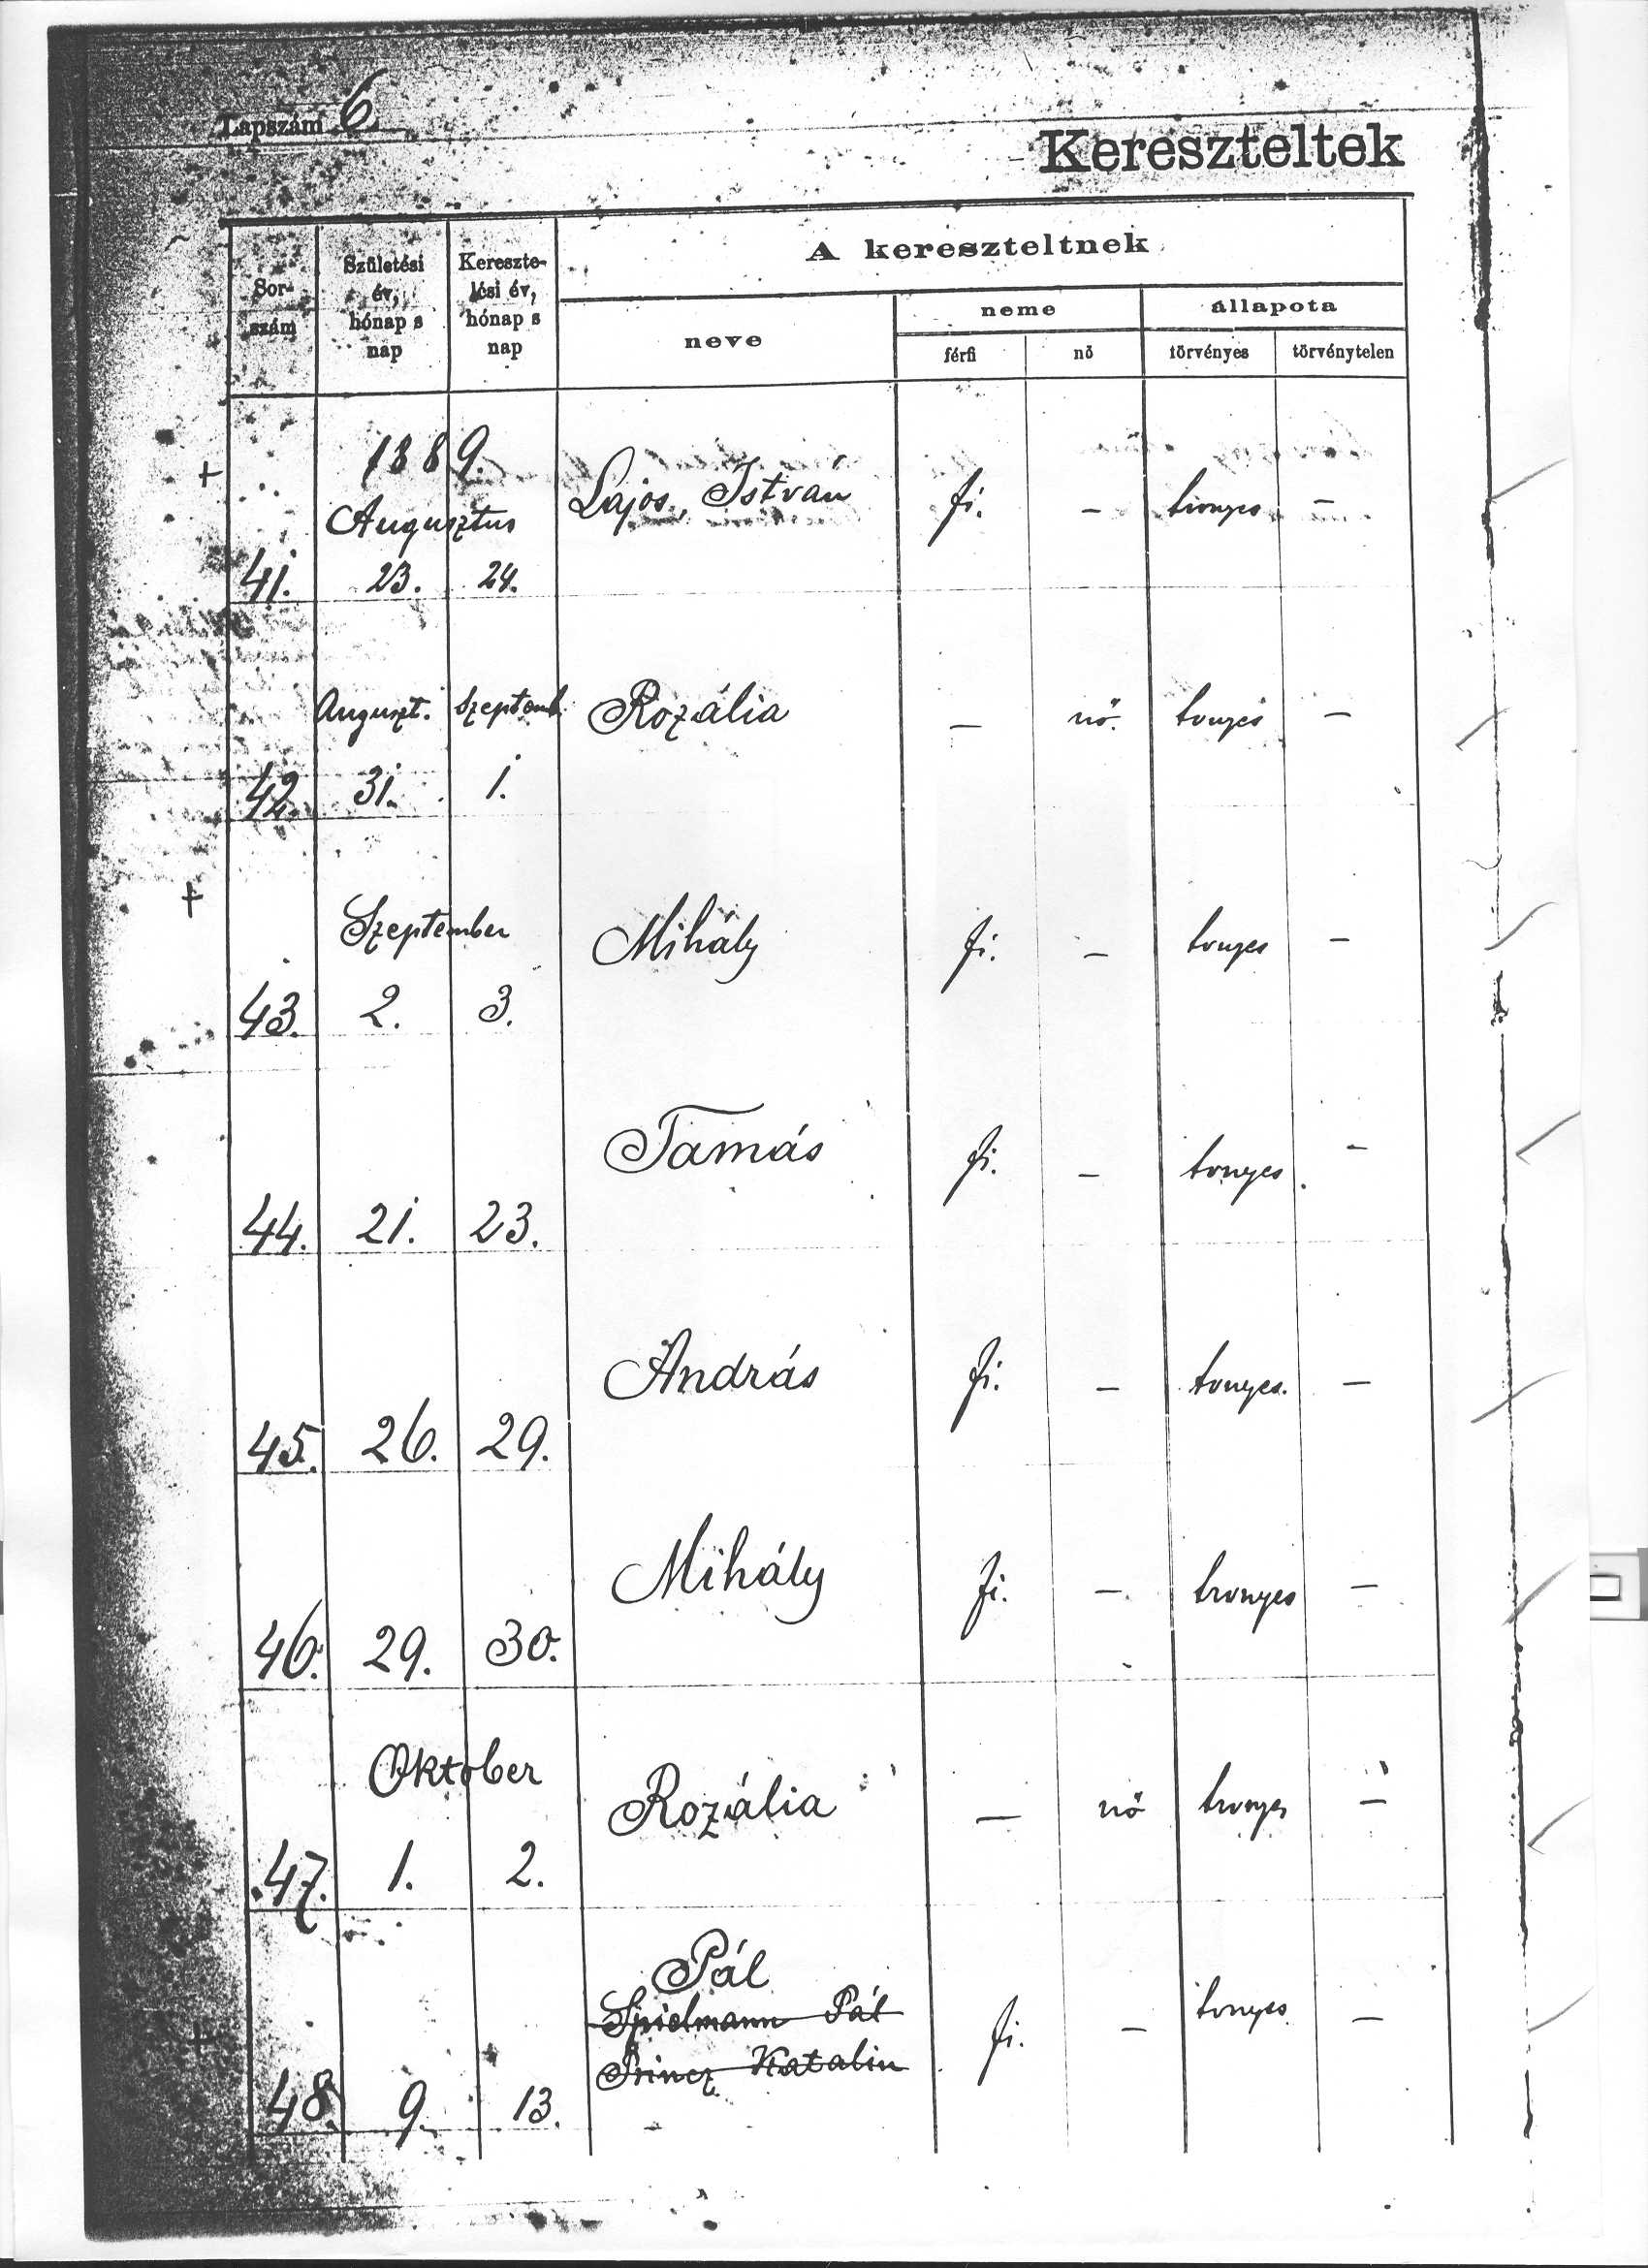 Lapszám 6
Kereszteltek
Sor-
szám
Születési
év,
hónap s
nap
Keresztelési év,
hónap s
nap
A kereszteltnek
neve
neme
állapota
férfi
nő
törvényes
törvénytelen
1889.
Augusztus
41. 23. 24. Lajos, István fi. – –
Auguszt. Szeptemb.
42. 31. 1. Rozália – nő. tvnyes –
Szeptember
43. 2. 3. Mihály fi. – tvnyes –
44. 21. 23. Tamás fi. – tvnyes –
45. 26. 29. András fi. – tvnyes. –
46. 29. 30. Mihály fi. – trvnyes –
Oktober
47. 1. 2. Rozália – nő trvnyes –
Pál
Spielmann Pál
Princz Katalin
48. 9. 13. fi. – tvnyes –